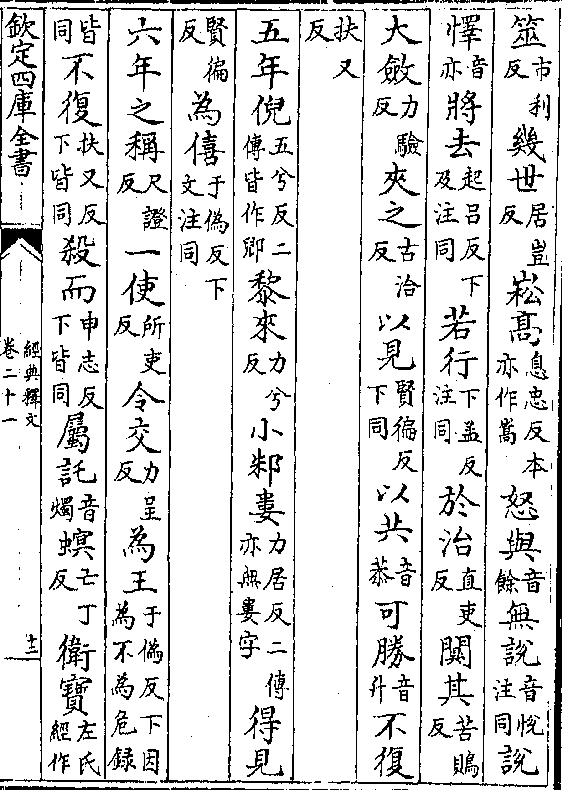 筮市利反幾世居豈反崧高息忠反本亦作嵩怒與音餘無說音悅注同說
懌音亦將去起呂反下及注同若行下孟反注同於治直吏反闚其苦鵙反
大斂力驗反夾之古洽反以見賢徧反下同以共音恭可勝音升不復
扶又反
五年倪五兮反二傳皆作郳黎來力兮反小邾婁力居反二傳亦無婁字得見
賢徧反為僖于偽反下文注同
六年之稱尺證反一使所吏反令交力呈反為王于偽反下因為不為危録
皆同不復扶又反下皆同殺而申志反下皆同屬託音燭螟亡丁反衛寶左氏經作
欽定四庫全書
經典釋文
卷二十一
十三